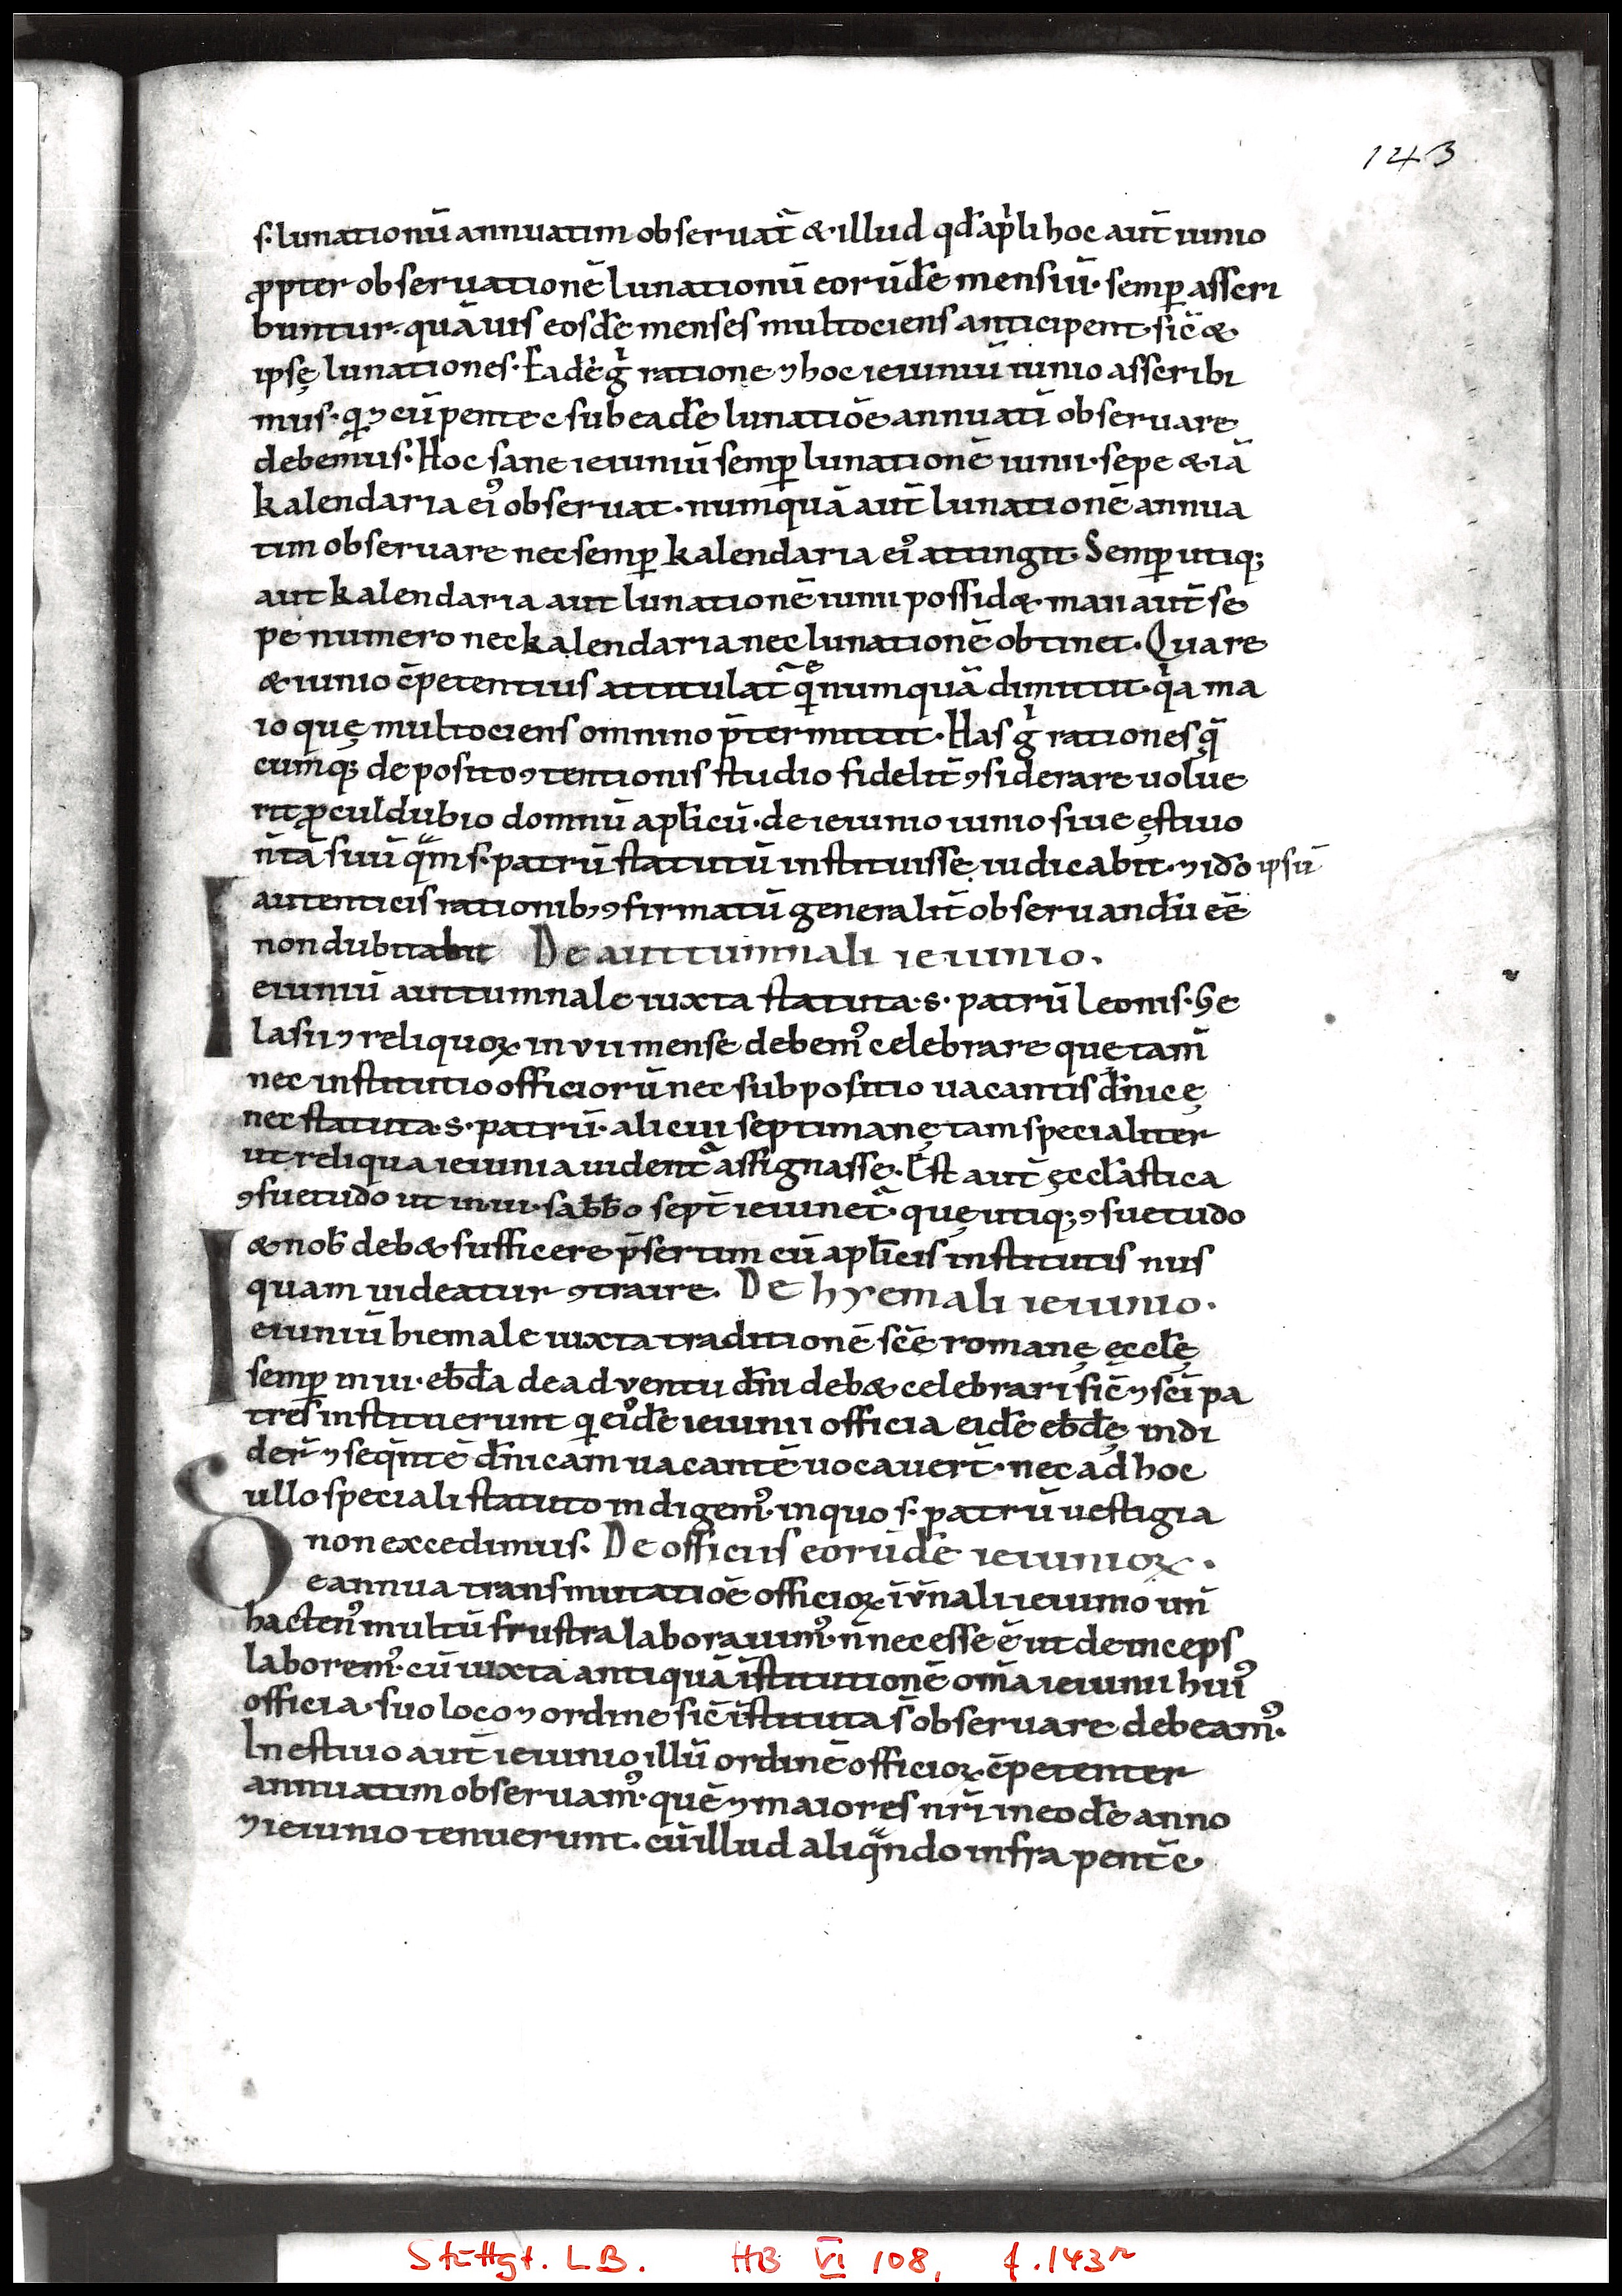 143
s· lunationū annuatim obseruat̄ &· illud qd̄ ap̄li hoc aut̄ iunio
ꝓpter obseruationē lunationū eorūdē mensiū· semꝑ asscri
buntur· quāuis eosdē menses multociens anticipent· sic̄ &
ipsę lunationes· Eadē gͥ ratione ⁊ hoc ieiuniū iunio asscribi
mus· qͥ ⁊ cū pentec̄ sub eadē lunatiōe annuatī obseruare
debemus· Hoc sane ieiuniū semꝑ lunationē iunii· sepe & iā
kalendaria eiꝰ obseruat· numquā aut̄ lunationē annua
tim obseruare nec semꝑ kalendaria eiꝰ attingit· Semꝑ utiq;
aut kalendaria aut lunationē iunii possid&· maii aut̄ se
pe numero nec kalendaria nec lunationē obtinet· Quare
& iunio c̄petentius attitulat̄ qͥ numquā dimittit· qͣ ma
io quę multociens omnino p̄termittit· Has gͥ rationes qͥ
cumq; deposito ꝯtentionis studio fidelit̄ ꝯsiderare uolue
rit ꝓculdubio domnū aplicū· de ieiunio iunio siue ęstiuo
n̄ tā suū qͣm s· patrū statutū instituisse iudicabit· ⁊ ido ipsū
autenticis rationib; ꝯfirmatū generalit̄ obseruandū eē
non dubitabit De auttumnali ieiunio·
Ieiuniū auttumnale iuxta statuta· s· patrū leonis· Ge
lasii ⁊ reliquoꝝ in vii mense debemꝰ celebrare quę tam̄
nec institutio officiorū nec subpositio uacantis dn̄icę
nec statuta· s· patrū· alicui septimanę tam specialiter
ut reliqua ieiunia uident̄ assignasse· Est aut̄ ęccl̄astica
ꝯsuetudo ut in· iii· sabb̄o sept̄ ieiunet̄· quę utiq; ꝯsuetudo
& nob̄ deb& sufficere p̄sertim cū aplicis institutis nus
quam uideatur ꝯtraire· De hyemali ieiunio·
Ieiuniū hiemale iuxta traditionē sc̄e romanę ęccl̄ę
semꝑ in iii· ebd̄a de adventu dn̄i deb& celebrari sic̄ ⁊ sc̄i pa
tres instituerunt qͥ eiꝰdē ieiunii officia eidē ebd̄ę indi
der̄ ⁊ seq̄ntē dn̄icam uacantē uocauer̄t· nec ad hoc
ullo speciali statuto indigemꝰ· in quo s· patrū uestigia
non excedimus· De officiis eorūdē ieiunioꝝ·
De annua transmutatiōe officioꝝ ī v̄nali ieiunio un̄
hactenꝰ multū frustra laborauimꝰ· n̄ necesse ē ut deinceps
laboremꝰ· cū iuxta antiquā īstitutionē om̄a ieiunii huiꝰ
officia· suo loco ⁊ ordine sic̄ īstituta s̄ obseruare debeamꝰ·
In estiuo aut̄ ieiunio illū ordinē officioꝝ c̄petenter
annuatim obseruamꝰ· quē ⁊ maiores nr̄i in eodē anno
⁊ ieiunio tenuerunt· cū illud aliqͣndo infra pentec̄
Stuttgt. L.B. HB VI 108, f. 143r